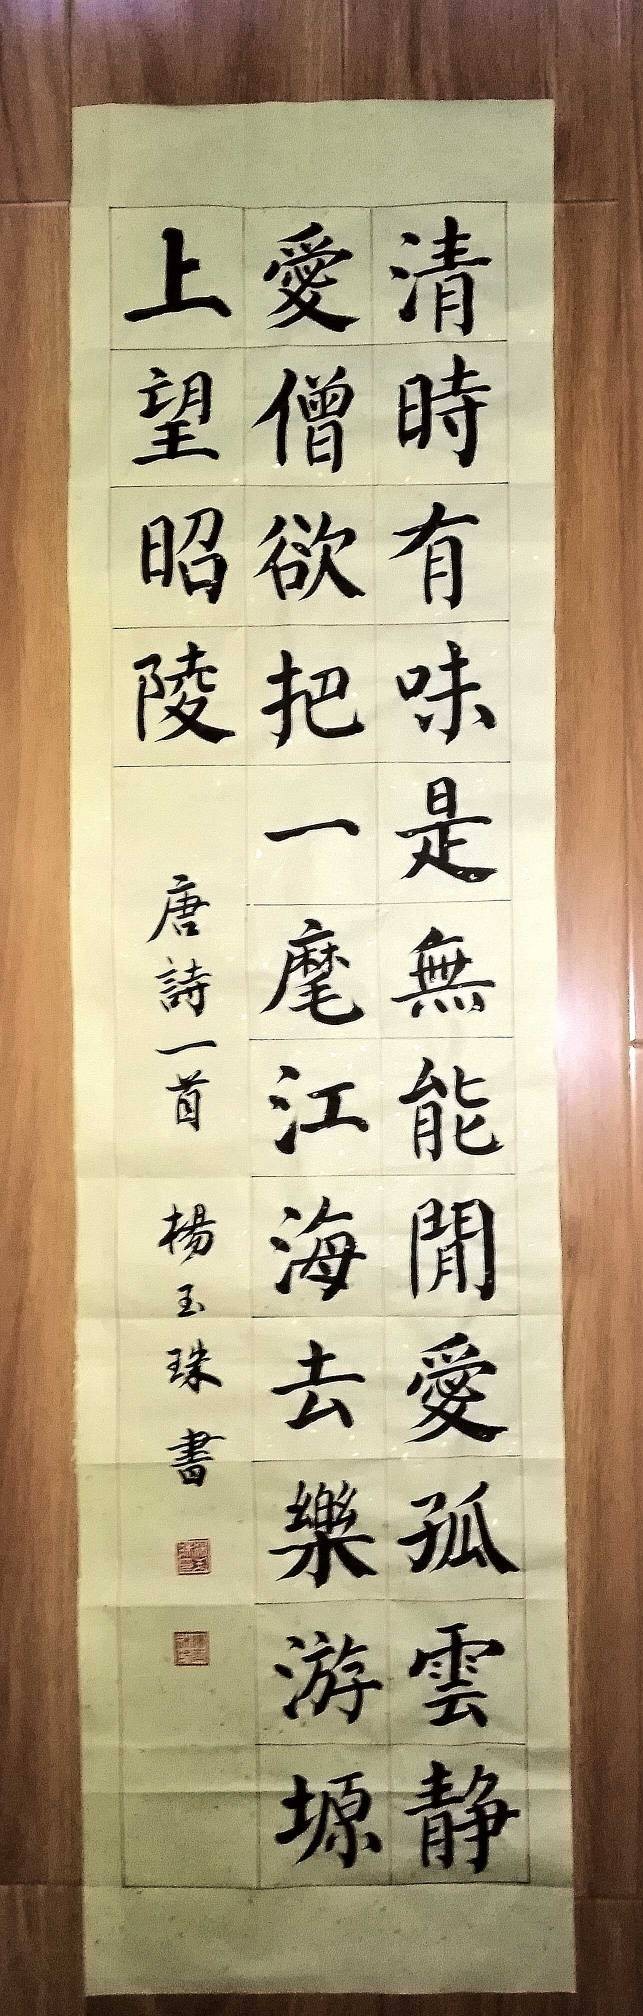 清時有味是無能閒愛孤雲静
愛僧欲把一麾江海去樂游塬
上望昭陵
唐詩一首 楊玉珠書